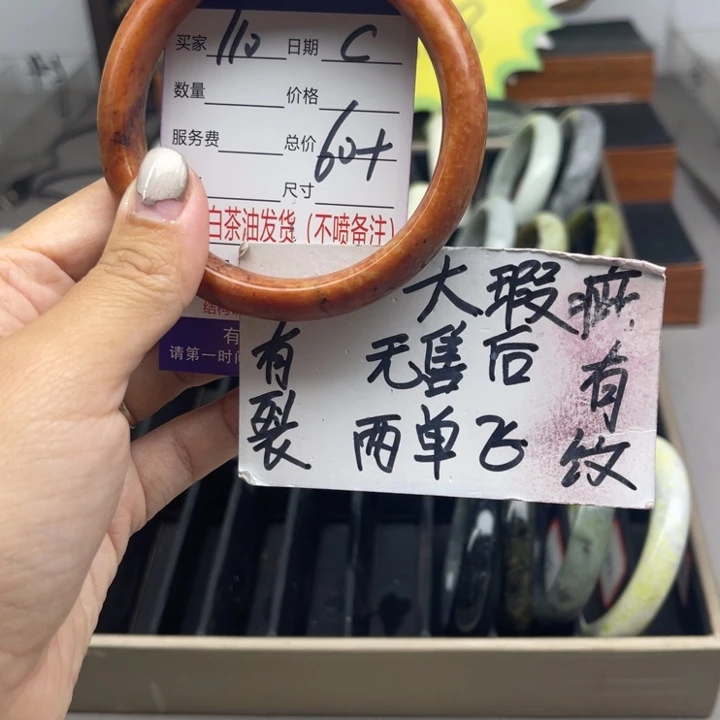 买家 110 日期 C
数量 价格
服务费 总价 60+
尺寸
白茶油发货（不喷备注）
有
请第一时间
大瑕疵
无售后
两单飞
有裂
有纹